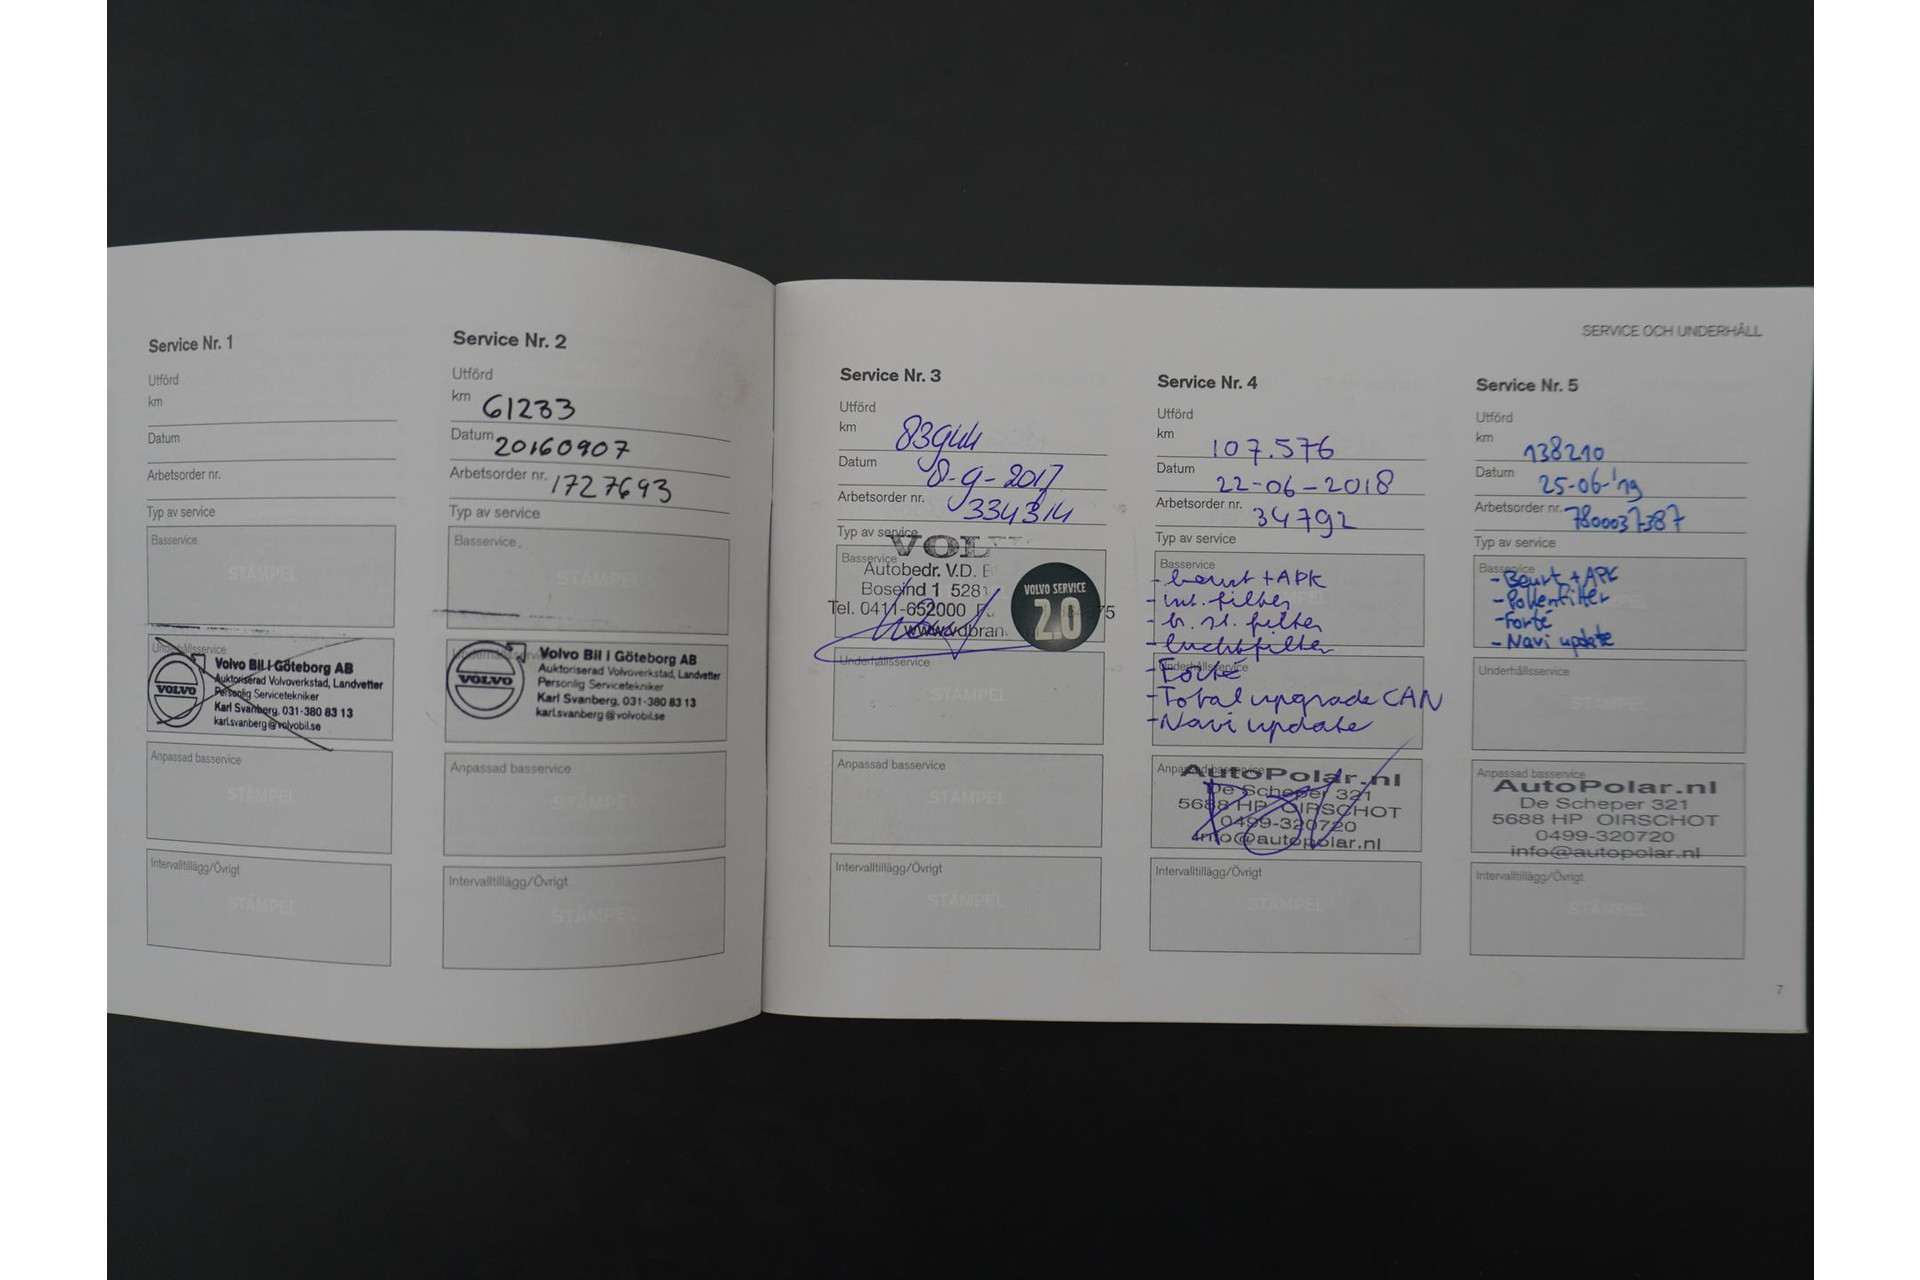 Service Nr. 1
Utförd
km
Datum
Arbetsorder nr.
Typ av service
Basservice
STÄMPEL
Underhållsservice
VOLVO
Volvo Bil I Göteborg AB
Auktoriserad Volvoverkstad, Landvetter
Personlig Servicetekniker
Karl Svanberg, 031-380 83 13
karl.svanberg@volvobil.se
Anpassad basservice
STÄMPEL
Intervalltillägg/Övrigt
STÄMPEL
Service Nr. 2
Utförd
km 61233
Datum 20160907
Arbetsorder nr. 1727693
Typ av service
Basservice
STÄMPEL
Underhållsservice
VOLVO
Volvo Bil I Göteborg AB
Auktoriserad Volvoverkstad, Landvetter
Personlig Servicetekniker
Karl Svanberg, 031-380 83 13
karl.svanberg@volvobil.se
Anpassad basservice
STÄMPEL
Intervalltillägg/Övrigt
STÄMPEL
SERVICE OCH UNDERHÅLL
Service Nr. 3
Utförd
km 83944
Datum 8-9-2017
Arbetsorder nr. 334314
Typ av service
Basservice
Autobedr. V.D.
Boseind 1 5281
Tel. 0411-652000
www.vdbran
VOLVO SERVICE
2.0
Underhållsservice
STÄMPEL
Anpassad basservice
STÄMPEL
Intervalltillägg/Övrigt
STÄMPEL
Service Nr. 4
Utförd
km 107.576
Datum 22-06-2018
Arbetsorder nr. 34792
Typ av service
Basservice
- beurt + APK
- int. filter
- br. st. filter
- luchtfilter
Underhållsservice
- Forté
- Total upgrade CAN
- Navi update
Anpassad basservice
AutoPolar.nl
De Scheper 321
5688 HP OIRSCHOT
0499-320720
info@autopolar.nl
Intervalltillägg/Övrigt
STÄMPEL
Service Nr. 5
Utförd
km 138210
Datum 25-06-'19
Arbetsorder nr. 7800037387
Typ av service
Basservice
- Beurt + APK
- Pollenfilter
- Forté
- Navi update
Underhållsservice
STÄMPEL
Anpassad basservice
AutoPolar.nl
De Scheper 321
5688 HP OIRSCHOT
0499-320720
info@autopolar.nl
Intervalltillägg/Övrigt
STÄMPEL
7